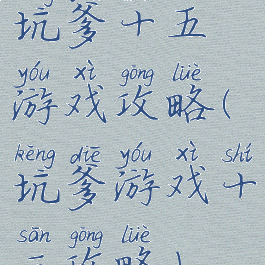 坑爹十五
yóu xì gōng lüè
游戏攻略(
kēng diē yóu xì shí
坑爹游戏十
sān gōng lüè
三攻略)